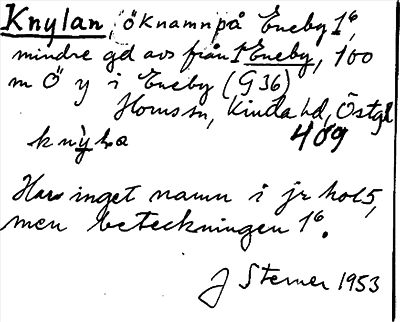 Knylan, öknamn på Eneby 1⁶,
mindre gd avs från 1 Eneby, 100
m Ö y i Eneby (G 36)
Horn sn, Kinda hd, Östgl
409
knỳla
Har inget namn i jr hol 5,
men beteckningen 1⁶.
J Sterner 1953